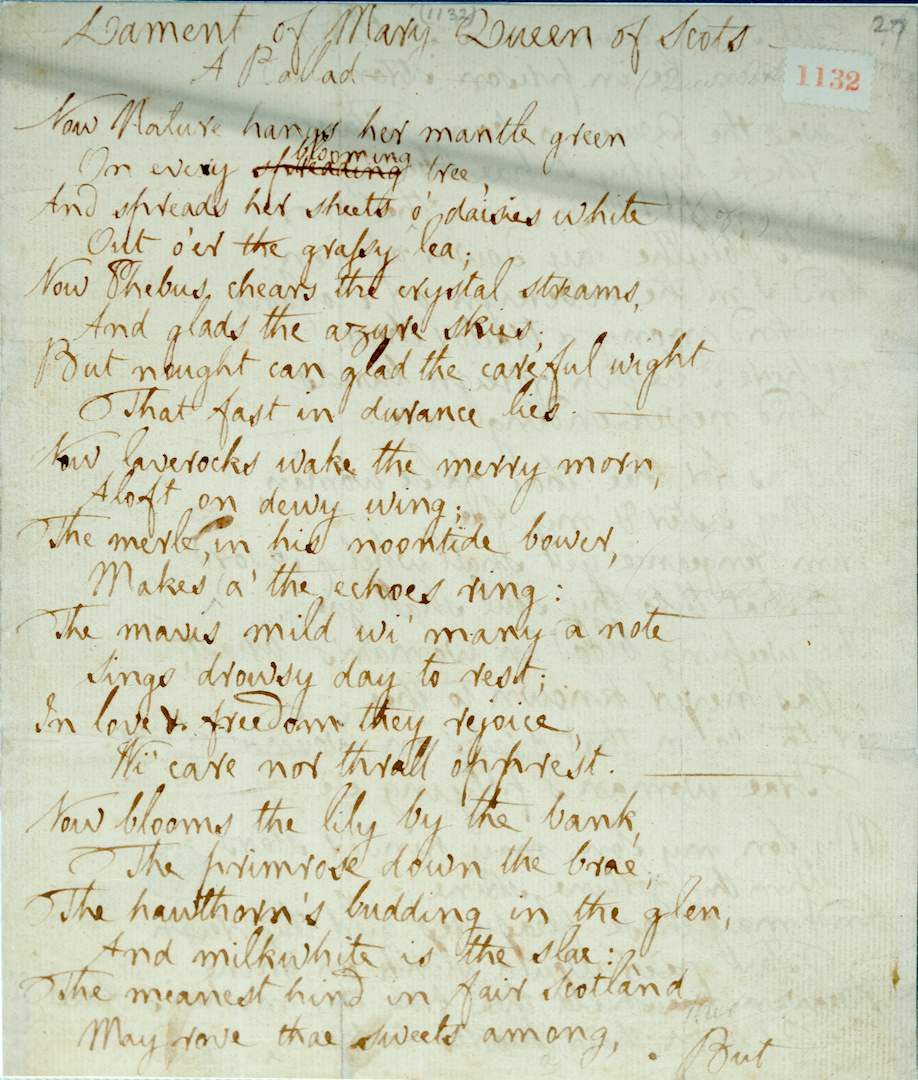 (1132)
27
Lament of Mary Queen of Scots
A Ballad
1132
Now Nature hangs her mantle green
blooming
On every spreading tree,
And spreads her sheets o' daisies white
Out o'er the grassy lea;
Now Phebus chears the crystal streams,
And glads the azure skies;
But nought can glad the careful wight
That fast in durance lies.
Now laverocks wake the merry morn,
Aloft on dewy wing;
The merle, in his noontide bower,
Makes a' the echoes ring:
The mavis mild wi' many a note
Sings drowsy day to rest;
In love & freedom they rejoice,
Wi' care nor thrall opprest.
Now blooms the lily by the bank,
The primrose down the brae;
The hawthorn's budding in the glen,
And milkwhite is the slae:
The meanest hind in fair Scotland
May rove thae sweets among,
But